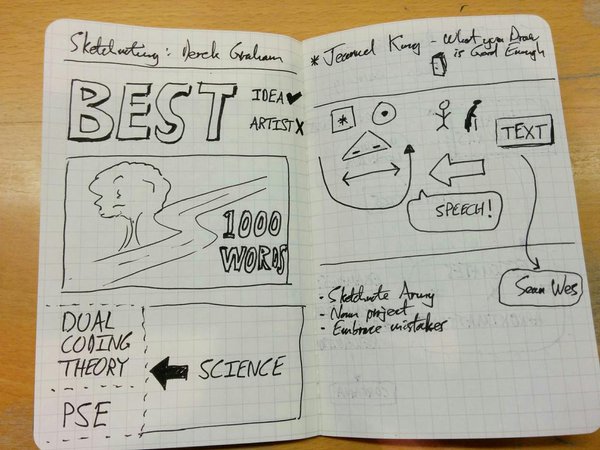 Sketchnoting: Derek Graham
BEST
IDEA
ARTIST X
1000
WORDS
DUAL
CODING
THEORY
PSE
SCIENCE
* Jeannel King - What you Draw
is Good Enough
TEXT
SPEECH!
Sean Wes
- Sketchnote Army
- Noun project
- Embrace mistakes